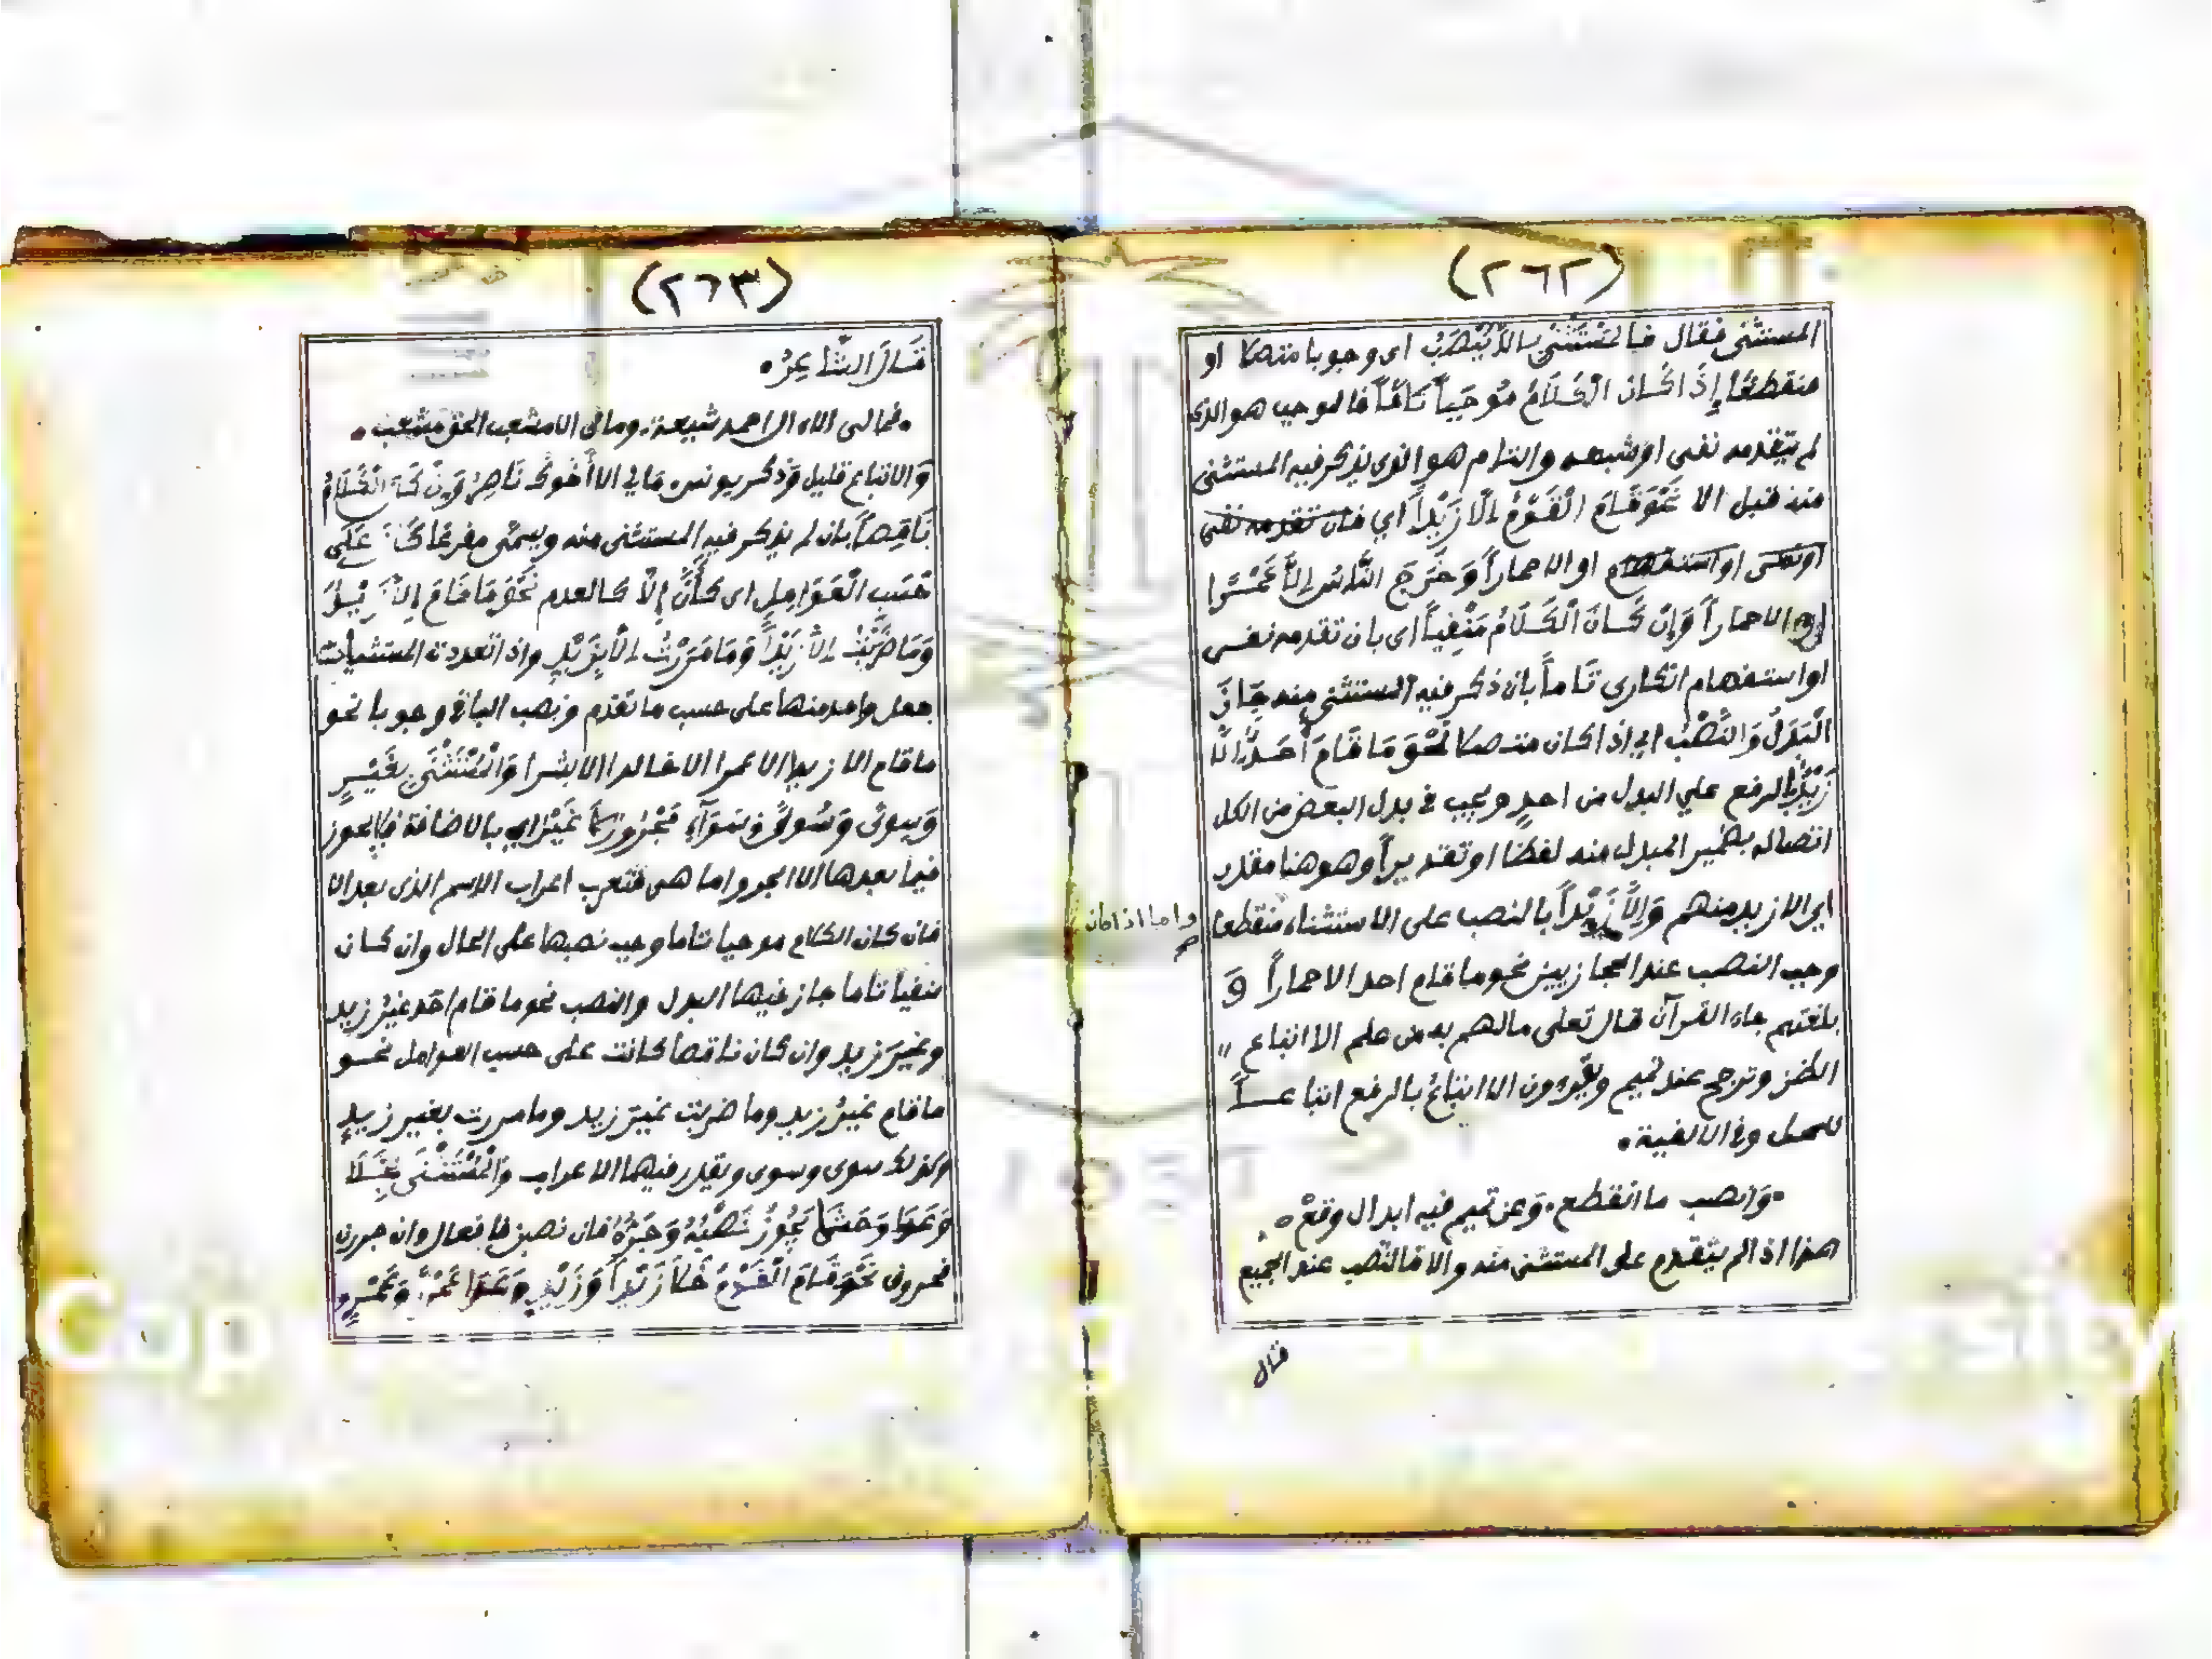 (٢٦٢)
المستثنى فقال فالمُسْتَثْنَى بالاّ يُنْصَبُ اى وجوبا متصلا او
منقطعًا إِذَا كَانَ الْكَلَامُ مُوْجَباً تَامّاً فالموجب هو الذى
لم يتقدمه نفى او شبهه والتام هو الذى يذكر فيه المستثنى
منه قبل الا نَحْوَ قَامَ الْقَوْمُ إِلّا زَيْداً اي فان تقدمه نفى
او نهى او استفهام او الا حماراً وَخَرَجَ النَّاسُ إِلاَّ عَمْرًا
او الا حماراً وَإِنْ كَانَ الْكَلَامُ مَنْفِياً اى بان تقدمه نفى
او استفهام انكارى تَاماً بان ذكر فيه المستثنى منه جَازَ
الْبَدَلُ وَالنَّصْبُ اى اذا كان متصلا نَحْوَ مَا قَامَ أَحَدٌ إِلّا
زَيْدٌ بالرفع علي البدل من احدٍ ويجب في بدل البعض من الكل
اتصاله بضمير المبدل منه لفظا او تقديراً وهو هنا مقدر
اى الا زيد منهم وَإِلَّا زَيْداً بالنصب على الاستثناء منقطعا
واما اذا كان
وجب النصب عند الحجازيين نحو ما قام احد الا حماراً وَ
بلغتهم جاء القرآن قال تعلى مالهم به من علم الا اتباع "
الظن وترجح عند تميم ويقرءون الا اتباعُ بالرفع اتباعـــاً
للمحل وفي الالفية •
• وَانصب ما انقطع • وَعن تميم فيه ابدال وقعْ •
هذا اذا لم يتقدم على المستثنى منه والا فالنصب عند الجميع
قال
(٢٦٣)
قَالَ الشَّاعِرُ •
• فمالى الا ال احمد شيعة • ومالى الا مشعب الحق مشعب •
وَالاتباع قليل وَذكر يونس مَا لي الا أَخُوكَ نَاصِرٌ وَإِنْ كَانَ الْكَلَامُ
نَاقِصاً بان لم يذكر فيه المستثنى منه ويسمى مفرغا كَانَ عَلَى
حَسَبِ الْعَوَامِلِ اى كأَنَّ إِلّا كالعدم نَحْوَ مَا قَامَ إِلّا زَيْدٌ
وَمَا ضَرَبْتُ إِلاّ زَيْداً وَمَا مَرَرْتُ إِلّا بِزَيْدٍ واذا تعددت المستثنيات
جعل واحد منها على حسب ما تقدم ونصب الباقي وجوبا نحو
ما قام الا زيد الا عمرا الا خالدا الا بشرا وَالْمُسْتَثْنَى بِغَيْرٍ
وَسِوىً وَسُوىً وَسَوَآءٍ مَجْرُورٌ بالاضافة فلا يجوز
فيما بعدها الا الجر واما هى فتعرب اعراب الاسم الذى بعد الا
فان كان الكلام موجبا تاما وجب نصبها على الحال وان كان
منفياً تاما جاز فيها البدل والنصب نحو ما قام احَد غيرُ زيد
وغيرَ زيد وان كان ناقصا كانت على حسب العوامل نحو
ما قام غيرُ زيدٍ وما ضربت غيرَ زيد وما مررت بغير زيدٍ
وكذلك سوى وسوى ويقدر فيهما الاعراب وَالْمُسْتَثْنَى بِخَلَا
وَعَدَا وَحَشَا يَجُوزُ نَصْبُهُ وَجَرُّهُ فان نصبن فافعال وان جررن
فحروف نَحْوَ قَامَ الْقَوْمُ خَلَا زَيْداً وَزَيْدٍ وَعَدَا عَمْرًا وَعَمْرٍو